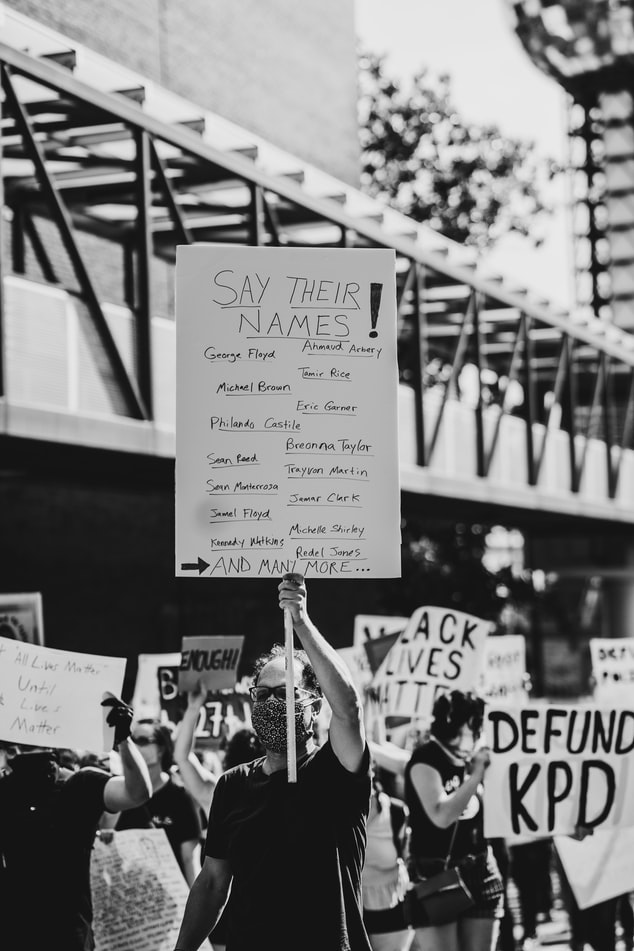 SAY THEIR
NAMES!
George Floyd
Ahmaud Arbery
Tamir Rice
Michael Brown
Eric Garner
Philando Castile
Breonna Taylor
Sean Reed
Trayvon Martin
Sean Monterrosa
Jamar Clark
Jamel Floyd
Michelle Shirley
Kennedy Watkins
Redel Jones
→ AND MANY MORE...
"All Lives Matter"
Until
Lives
Matter
ENOUGH!
LACK
LIVES
MATTE
DEFUND
KPD